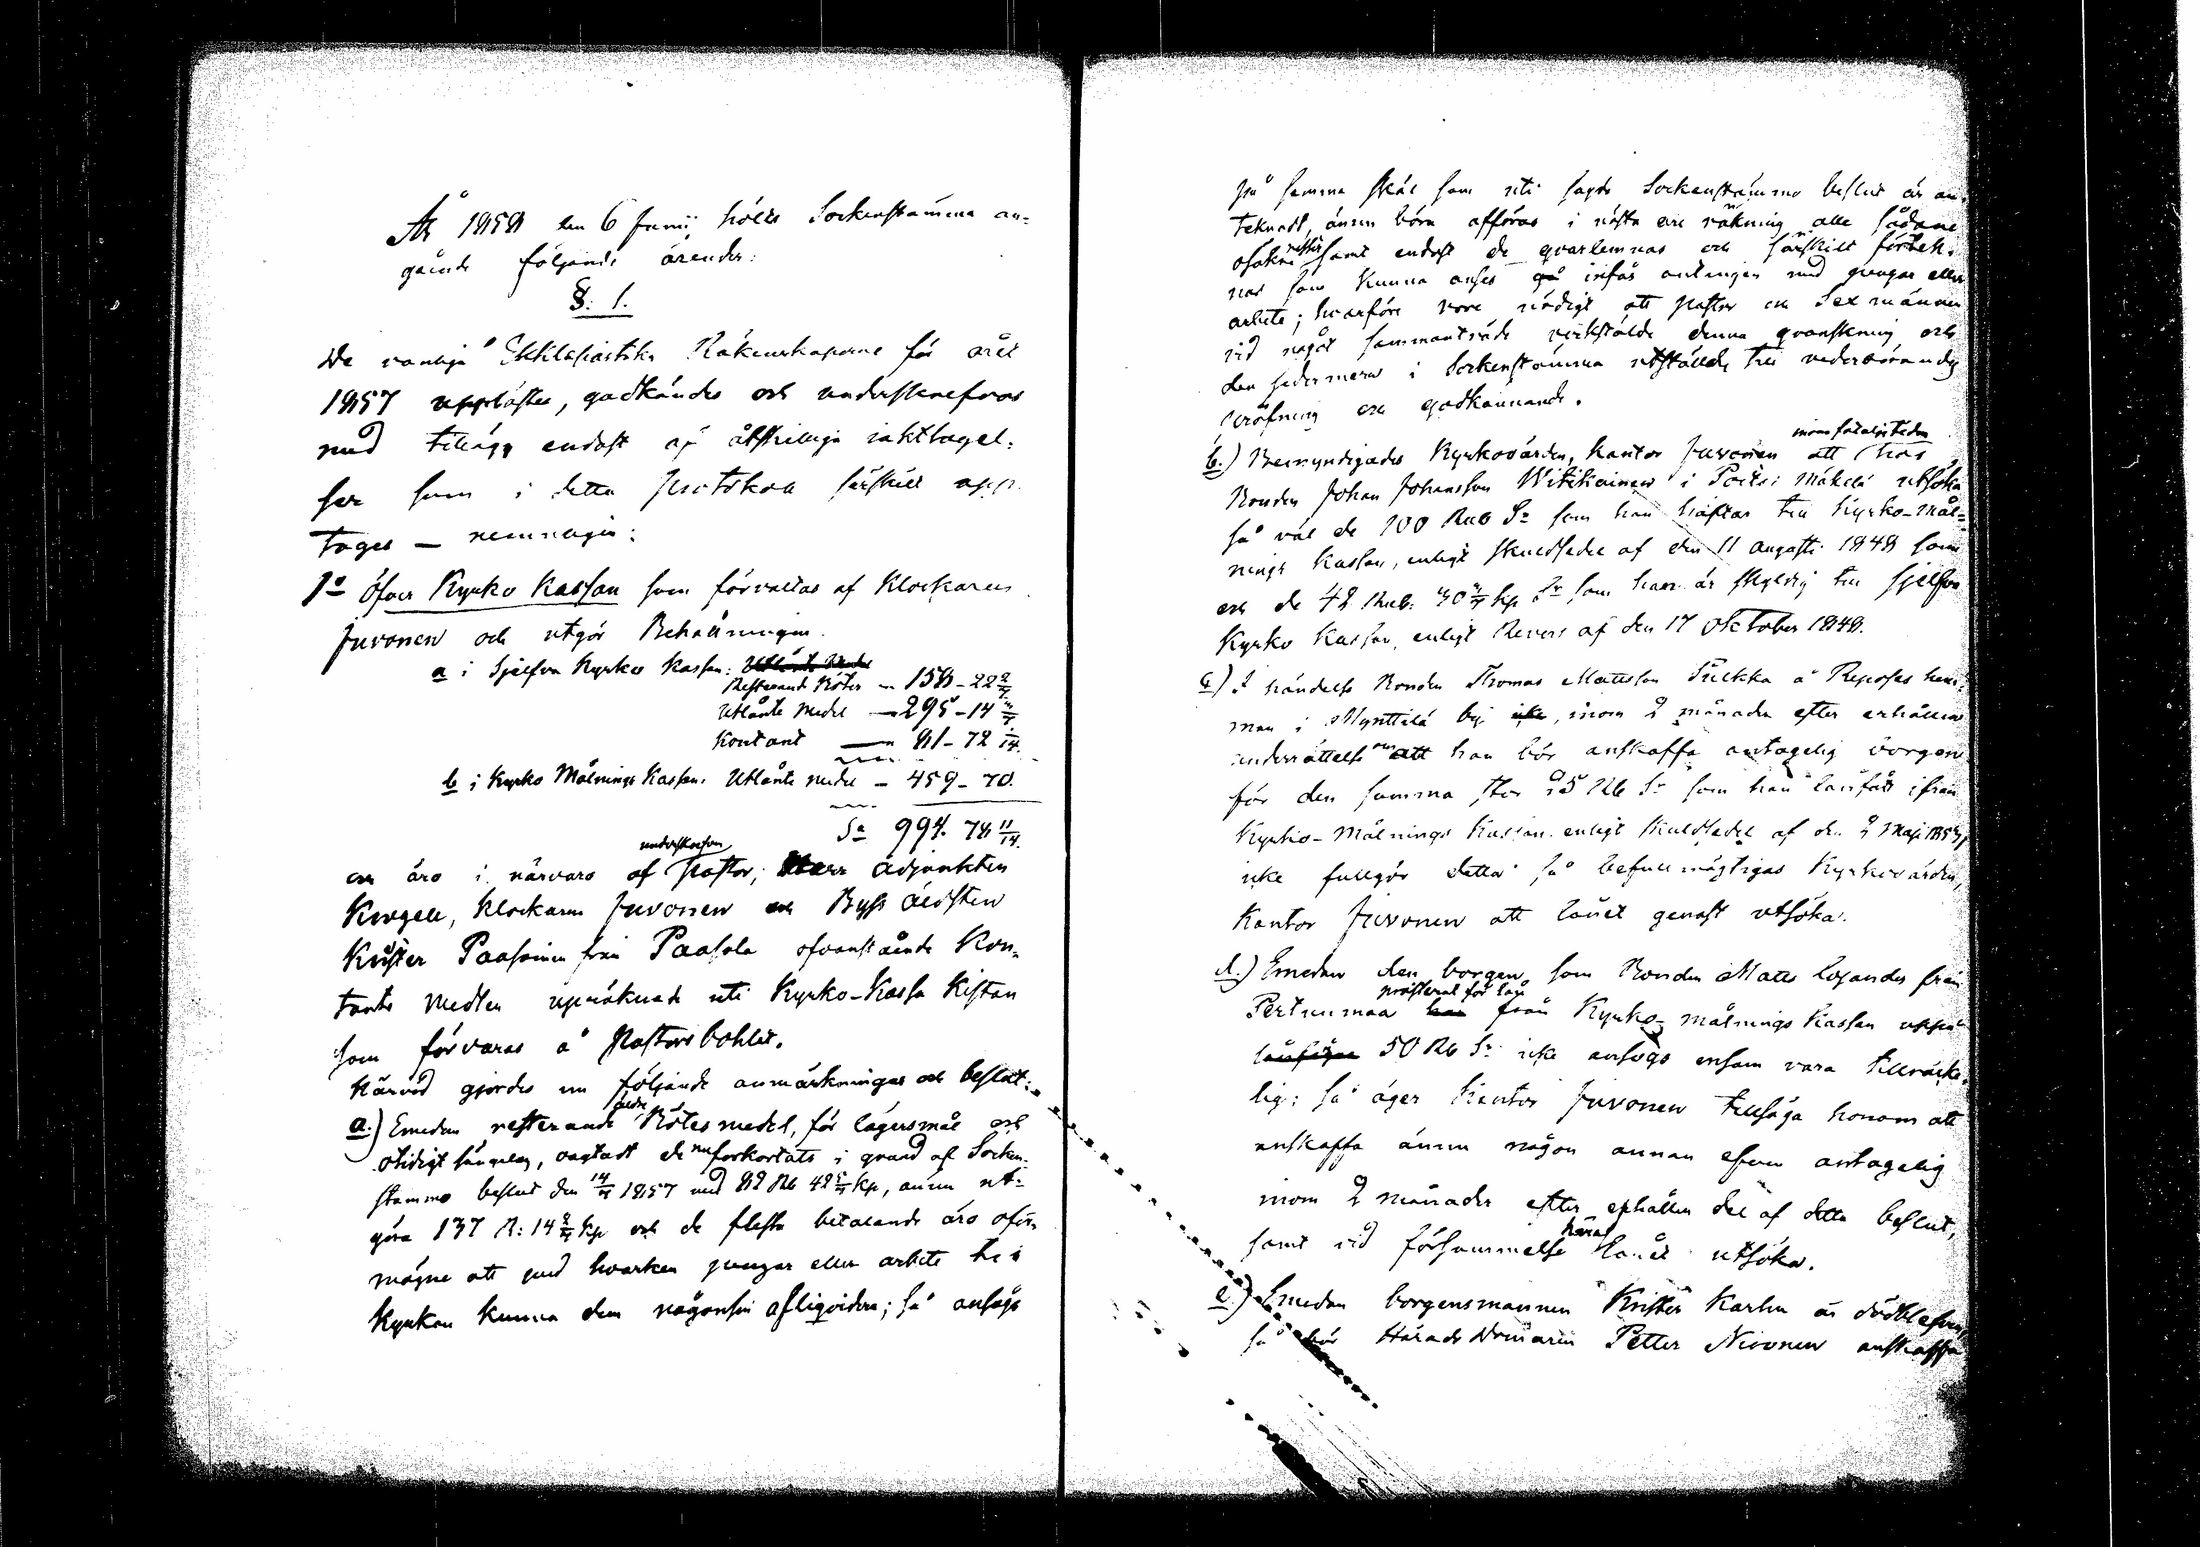 År 1858 den 6 Junij hölts Sockenstämma an-
gående följande ärender:
§: 1.
De vanliga Ekklesiastika Räkenskaperne för året
1857 upplästes, godkändes och underskrefvos
med tillägg endast af åtskilliga iakttagel-
ser som i detta Protokoll särskilt upp-
tages — nemnligen:
1o Öfver Kyrko Kassan som förvaltas af Klockaren
Juvonen och utgör Behållningen
a i Sjelfva Kyrko Kassan: Utlånte Medel
Resterande Röter — 158 - 22 2/7
Utlånte Medel — 295 - 14 4/7
Kontant — 81 - 72 1/14
b i Kyrko Målnings Kassan. Utlånte medel — 459 - 70.
Sa 994. 78 11/14.
underskrefven
och äro i närvaro af Pastor, Herr Adjunkten
Krogell, Klockaren Juvonen och Byss Åldsten
Krister Paasoinen från Paasola ofvanstående Kon-
tante Medlen uppräknade uti Kyrko-Kassa Kistan
som förvaras å Pastorsbohlet.
Härvid gjordes nu följande anmärkningar och beslut:
a.) Emedan resterande äldre Rötesmedel, för lägersmål och
otidigt sängelag, oagtadt de nu förkortats i grund af Socken-
stämmo beslut den 14/7 1857 med 82 Rb 42 6/7 kp, ännu ut-
göra 137 R: 14 2/7 kp och de flesta betalande äro oför-
mögne att med hvarken pengar eller arbete till
Kyrkan kunna dem någonsin afliqvidera; så ansågs
på samma skäl som uti sagde Sockenstämmo beslut är an-
teknadt, ännu böra afföras i nästa års räkning alle sådane
osäkra rester samt endast de qvarlemnas och särskilt förtek-
nas som kunna anses gå infås antingen med pengar eller
arbete; hvarföre vore nödigt att Pastor och Sexmännen
vid något sammanträde verkstälde denna granskning och
den sedermera i Sockenstämma utställdes till vederbörandes
pröfning och godkännande.
b.) Bemyndigades Kyrkovärden, Kantor Juvonen att inom fatalietiden hos
Bonden Johan Johansson Witikainen i Poitsi mäkelä utsöka
så väl de 100 Rub Sr som han häftar till Kyrko-mål-
nings Kassan, enligt skuldsedel af den 11 augusti 1848 som
och de 42 Rub: 40 4/7 kp Sr som han är skyldig till sjelfva
Kyrko Kassan, enligt Revers af den 17 Oktober 1848.
c.) I händelse Bonden Thomas Mattsson Suikka å Reposes hem-
man i Mynttilä by icke, inom 2 månader efter erhållen
underrättelse om att han bör anskaffa antagelig borgen
för den summa stor 25 Rb Sr som han lånfått ifrån
Kyrko-Målnings Kassan enligt skuldsedel af den 2 Maji 1857,
icke fullgör detta så befullmägtigas Kyrkovärden,
Kantor Juvonen att lånet genast utsöka.
d.) Emedan den borgen, som Bonden Matts Logander från
Pertunmaa han presterat för lån från Kyrko-målnings Kassan uppå
50 Rb Sr icke ansågs ensam vara tillräcke-
lig; så äger Kantor Juvonen tillsäga honom att
anskaffa ännu någon annan äfven antagelig
inom 2 månader efter erhållen del af detta beslut,
samt vid försummelse häraf lånet utsöka.
e.) Emedan borgensmannen Krister Karhu är dödblefven,
så bör Härads Domaren Petter Nivonen anskaffa